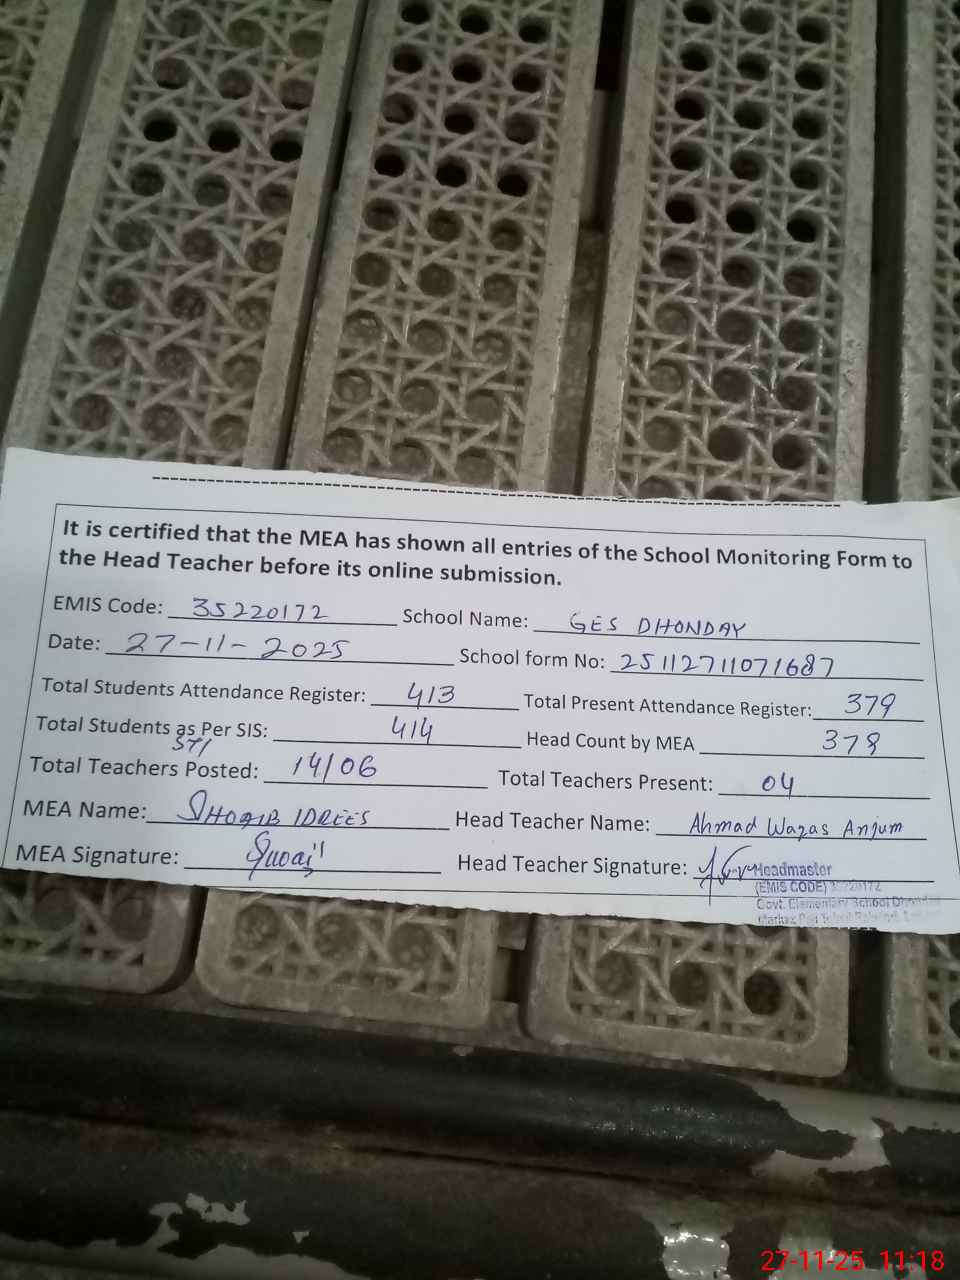 It is certified that the MEA has shown all entries of the School Monitoring Form to
the Head Teacher before its online submission.
EMIS Code: 35220172 School Name: GES DHONDAY
Date: 27-11-2025 School form No: 25112711071687
Total Students Attendance Register: 413 Total Present Attendance Register: 379
Total Students as Per SIS: 414 Head Count by MEA 379
STI
Total Teachers Posted: 14/06 Total Teachers Present: 04
MEA Name: SHOAIB IDREES Head Teacher Name: Ahmad Waqas Anjum
MEA Signature: Head Teacher Signature:
Headmaster
(EMIS CODE) 35220172
Govt. Elementary School
27-11-25 11:18